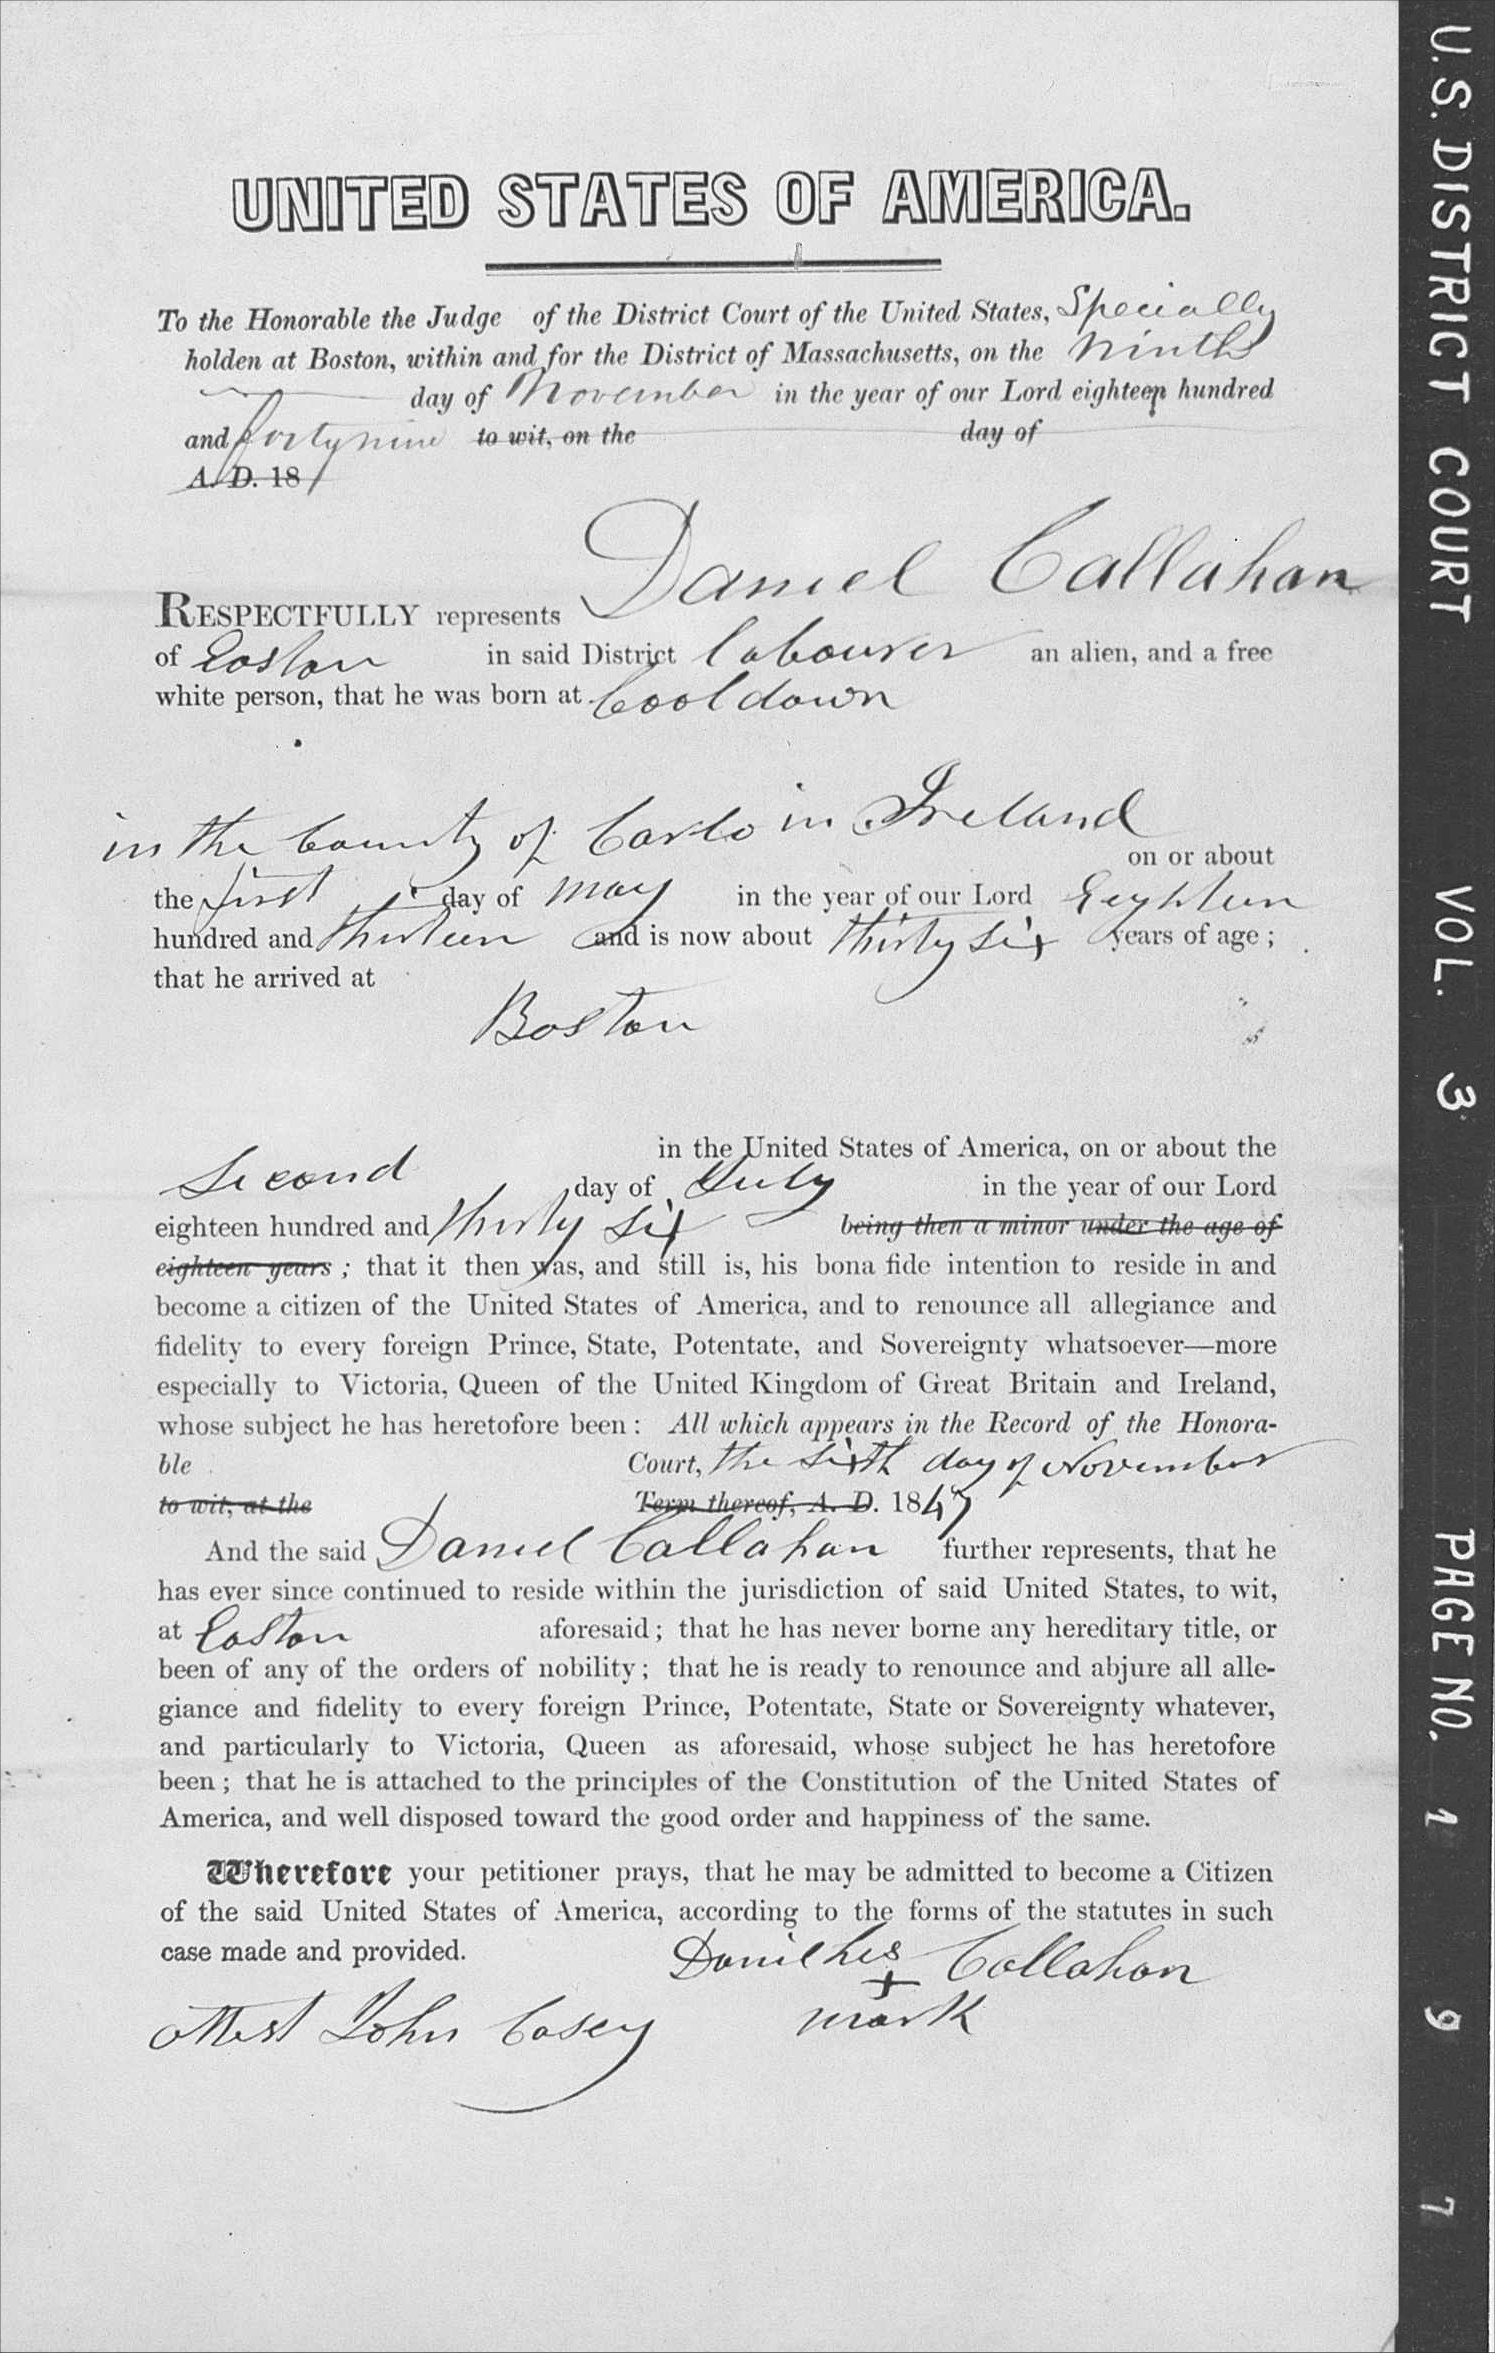 UNITED STATES OF AMERICA.
To the Honorable the Judge of the District Court of the United States, Specially
holden at Boston, within and for the District of Massachusetts, on the Ninth
day of November in the year of our Lord eighteen hundred
and forty nine to wit, on the day of
A. D. 18
Daniel Callahan
RESPECTFULLY represents
of Easton in said District labourer an alien, and a free
white person, that he was born at Cooldown
in the County of Carlo in Ireland
on or about
the first day of May in the year of our Lord Eeyhteen
hundred and thirteen and is now about thirty six years of age ;
that he arrived at
Boston
in the United States of America, on or about the
Second day of July in the year of our Lord
eighteen hundred and thirty six being then a minor under the age of
eighteen years ; that it then was, and still is, his bona fide intention to reside in and
become a citizen of the United States of America, and to renounce all allegiance and
fidelity to every foreign Prince, State, Potentate, and Sovereignty whatsoever—more
especially to Victoria, Queen of the United Kingdom of Great Britain and Ireland,
whose subject he has heretofore been : All which appears in the Record of the Honora-
ble Court, the sixth day of November
to wit, at the Term thereof, A. D. 1847
And the said Daniel Callahan further represents, that he
has ever since continued to reside within the jurisdiction of said United States, to wit,
at Easton aforesaid ; that he has never borne any hereditary title, or
been of any of the orders of nobility ; that he is ready to renounce and abjure all alle-
giance and fidelity to every foreign Prince, Potentate, State or Sovereignty whatever,
and particularly to Victoria, Queen as aforesaid, whose subject he has heretofore
been ; that he is attached to the principles of the Constitution of the United States of
America, and well disposed toward the good order and happiness of the same.
Wherefore your petitioner prays, that he may be admitted to become a Citizen
of the said United States of America, according to the forms of the statutes in such
case made and provided.
Daniel his Callahan
+
mark
attest John Casey
U.S. DISTRICT COURT VOL. 3 PAGE NO. 197